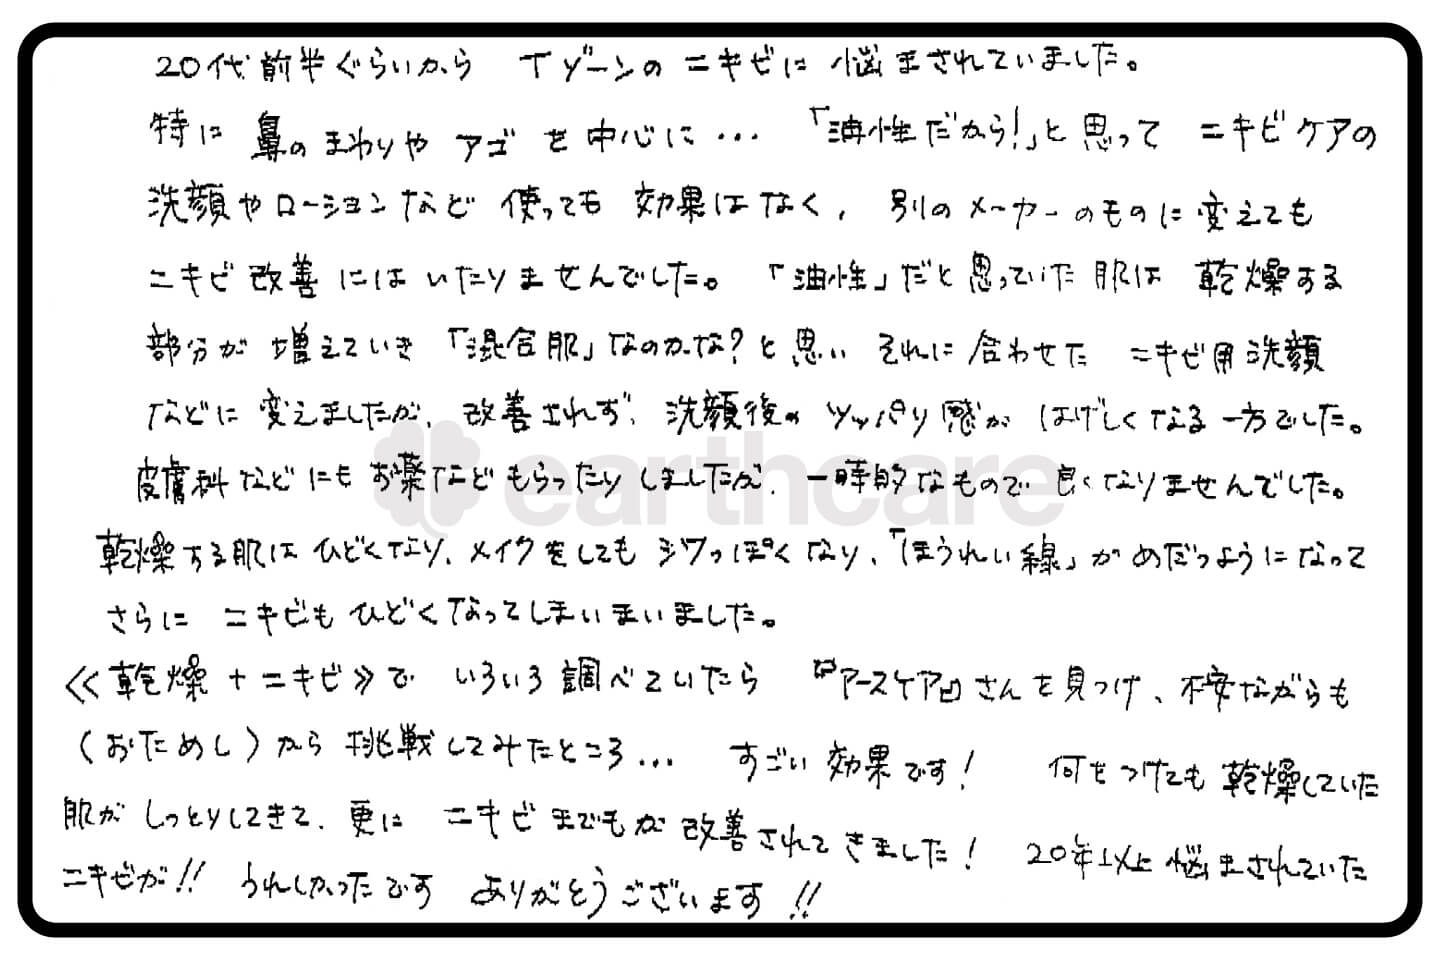 20代前半ぐらいから Tゾーンのニキビに悩まされていました。
特に鼻のまわりやアゴを中心に… 「油性だから!」と思って ニキビケアの
洗顔やローションなど使っても効果はなく、別のメーカーのものに変えても
ニキビ改善にはいたりませんでした。「油性」だと思っていた肌は乾燥する
部分が増えていき「混合肌」なのかな?と思い それに合わせた ニキビ用洗顔
などに変えましたが、改善されず、洗顔後のツッパリ感がはげしくなる一方でした。
皮膚科などにもお薬などもらったりしましたが、一時的なもので良くなりませんでした。
乾燥する肌はひどくなり、メイクをしてもシワっぽくなり、「ほうれい線」がめだつようになって
さらに ニキビもひどくなってしまいまいました。
≪乾燥+ニキビ≫で いろいろ調べていたら 『アースケア』さんを見つけ、不安ながらも
(おためし)から挑戦してみたところ… すごい効果です! 何をつけても乾燥していた
肌がしっとりしてきて、更に ニキビまでもが改善されてきました! 20年以上悩まされていた
ニキビが!! うれしかったです ありがとうございます!!
earthcare